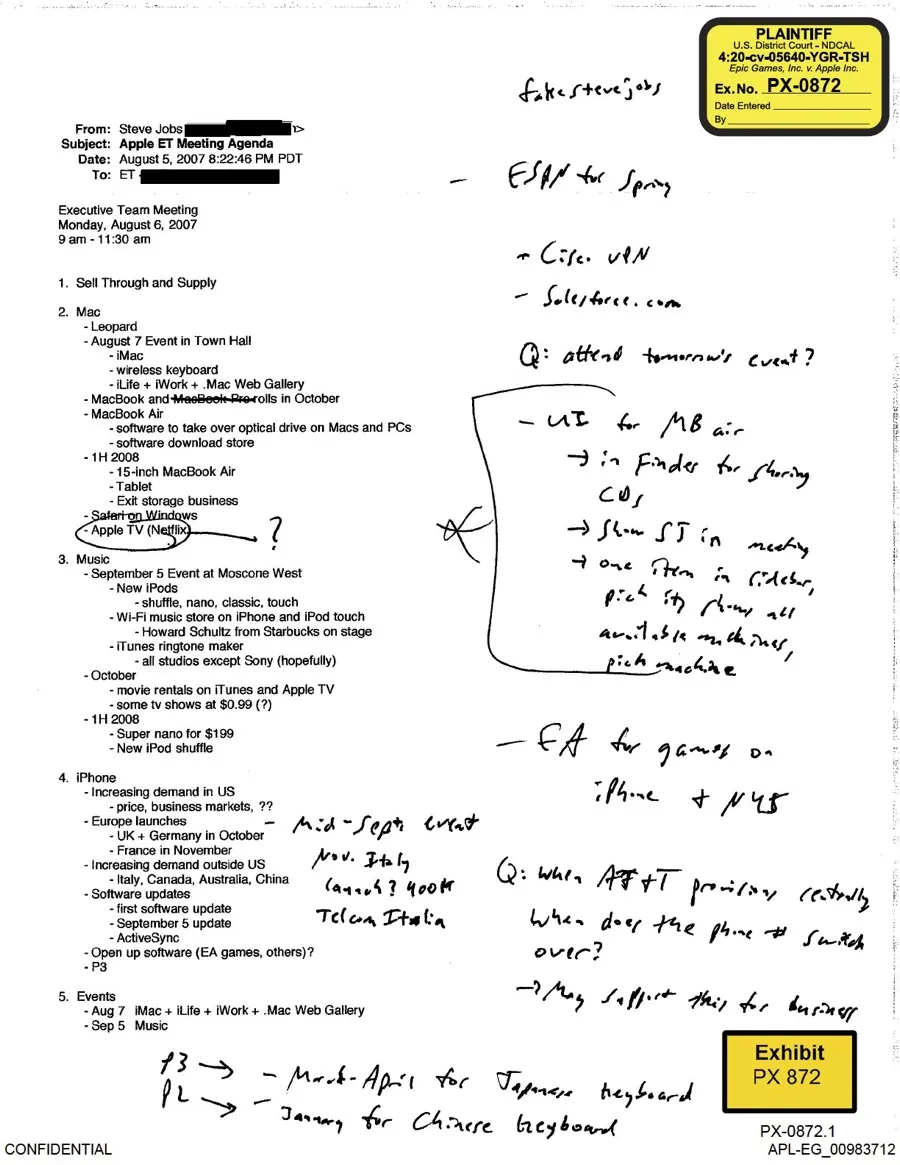 PLAINTIFF
U.S. District Court - NDCAL
4:20-cv-05640-YGR-TSH
Epic Games, Inc. v. Apple Inc.
Ex.No. PX-0872
Date Entered
By
fakestevejobs
From: Steve Jobs
Subject: Apple ET Meeting Agenda
Date: August 5, 2007 8:22:46 PM PDT
To: ET
- ESPN for Spring
Executive Team Meeting
Monday, August 6, 2007
9 am - 11:30 am
- Cisco VPN
- Salesforce.com
Q: attend tomorrow's event?
1. Sell Through and Supply
2. Mac
- Leopard
- August 7 Event in Town Hall
- iMac
- wireless keyboard
- iLife + iWork + .Mac Web Gallery
- MacBook and MacBook Pro rolls in October
- MacBook Air
- software to take over optical drive on Macs and PCs
- software download store
- 1H 2008
- 15-inch MacBook Air
- Tablet
- Exit storage business
- Safari on Windows
- Apple TV (Netflix) ?
- UI for MB air
→ in Finder for sharing
CDs
→ Show SJ in meeting
→ one item in sidebar,
pick it, shows all
available machines,
pick machine
3. Music
- September 5 Event at Moscone West
- New iPods
- shuffle, nano, classic, touch
- Wi-Fi music store on iPhone and iPod touch
- Howard Schultz from Starbucks on stage
- iTunes ringtone maker
- all studios except Sony (hopefully)
- October
- movie rentals on iTunes and Apple TV
- some tv shows at $0.99 (?)
- 1H 2008
- Super nano for $199
- New iPod shuffle
- EA for games on
iPhone + N45
4. iPhone
- Increasing demand in US
- price, business markets, ??
- Europe launches
- UK + Germany in October
- France in November
- Increasing demand outside US
- Italy, Canada, Australia, China
- Software updates
- first software update
- September 5 update
- ActiveSync
- Open up software (EA games, others)?
- P3
- Mid-Sept event
Nov. Italy
launch? 400K
Telecom Italia
Q: when AT+T provisions centrally
when does the phone # switch
over?
→ May support this for business
5. Events
- Aug 7 iMac + iLife + iWork + .Mac Web Gallery
- Sep 5 Music
P3 → - March-April for Japanese keyboard
P2 → - January for Chinese keyboard
Exhibit
PX 872
PX-0872.1
CONFIDENTIAL
APL-EG_00983712